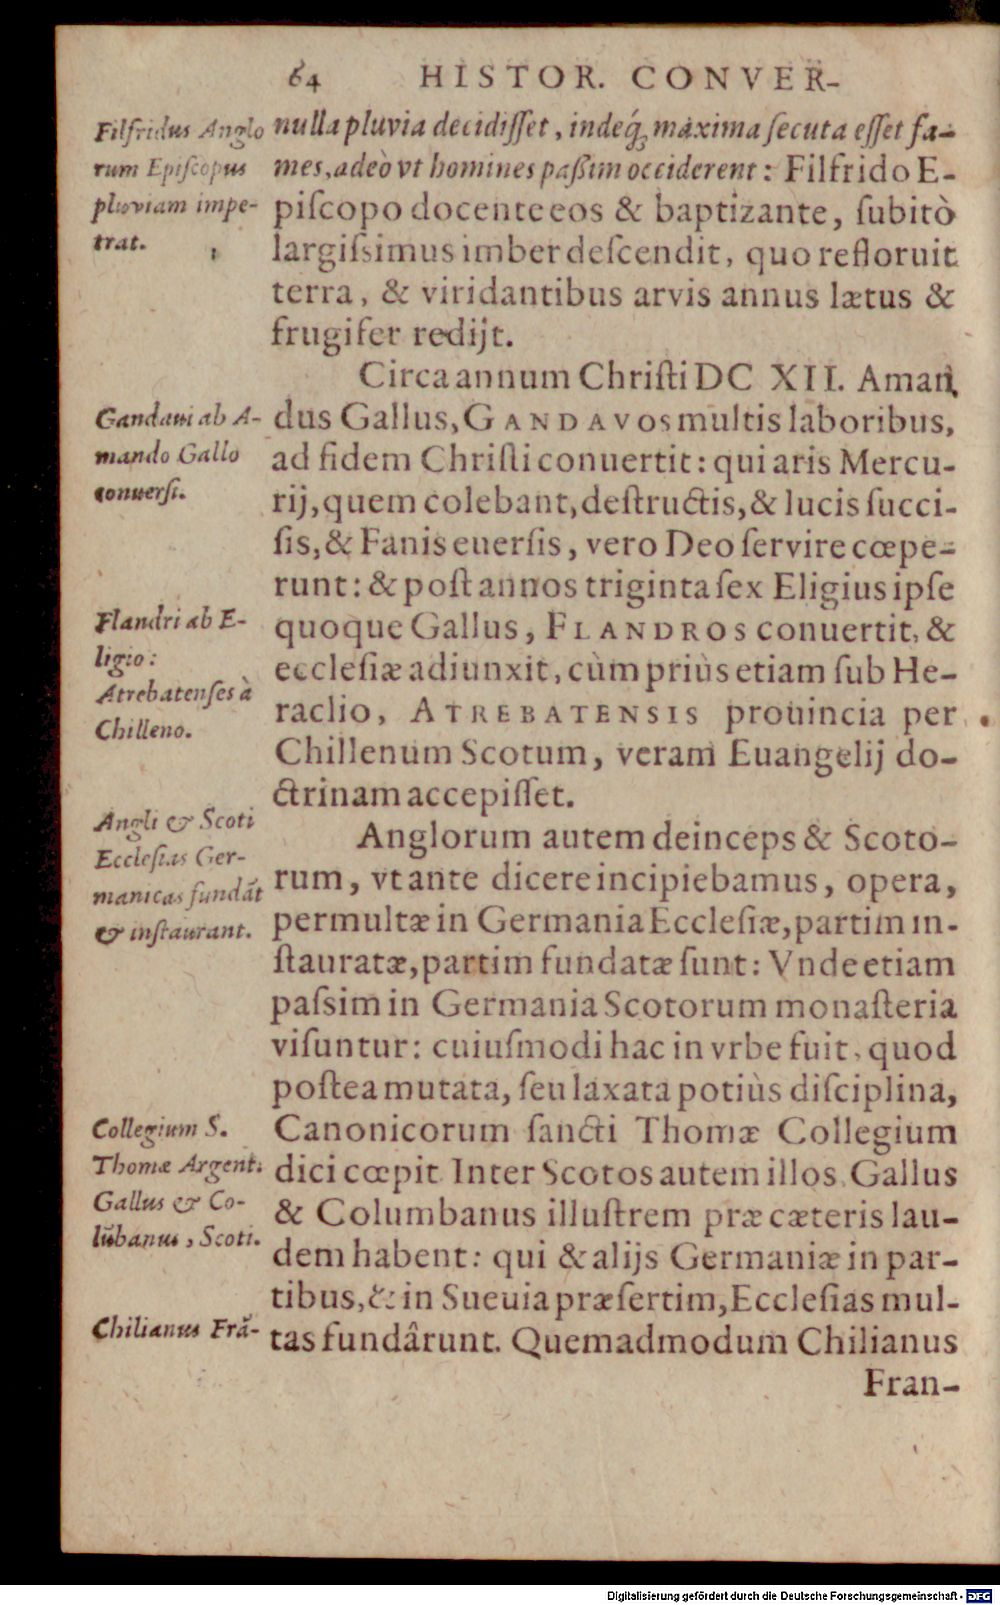 64 HISTOR. CONVER-
Filfridus Anglo
rum Episcopus
pluviam impe-
trat.
nulla pluvia decidiſſet, indeq́; maxima ſecuta eſſet fa-
mes, adeò vt homines paßim occiderent: Filfrido E-
piſcopo docente eos & baptizante, ſubitò
largiſsimus imber deſcendit, quo refloruit
terra, & viridantibus arvis annus lætus &
frugifer redijt.
Circa annum Chriſti DC XII. Aman
Gandaui ab A-
mando Gallo
conuerſi.
dus Gallus, GANDAVOS multis laboribus,
ad fidem Chriſti conuertit: qui aris Mercu-
rij, quem colebant, deſtructis, & lucis ſucci-
ſis, & Fanis euerſis, vero Deo ſervire cœpe-
runt: & poſt annos triginta ſex Eligius ipſe
Flandri ab E-
ligio:
Atrebatenſes à
Chilleno.
quoque Gallus, FLANDROS conuertit, &
eccleſiæ adiunxit, cùm priùs etiam ſub He-
raclio, ATREBATENSIS prouincia per
Chillenum Scotum, veram Euangelij do-
ctrinam accepiſſet.
Angli & Scoti
Eccleſias Ger-
manicas fundãt
& inſtaurant.
Anglorum autem deinceps & Scoto-
rum, vt ante dicere incipiebamus, opera,
permultæ in Germania Eccleſiæ, partim in-
ſtauratæ, partim fundatæ ſunt: Vnde etiam
paſsim in Germania Scotorum monaſteria
viſuntur: cuiuſmodi hac in vrbe fuit, quod
poſtea mutata, ſeu laxata potiùs diſciplina,
Collegium S.
Thomæ Argent.
Gallus & Co-
lũbanus, Scoti.
Canonicorum ſancti Thomæ Collegium
dici cœpit. Inter Scotos autem illos, Gallus
& Columbanus illuſtrem præ cæteris lau-
dem habent: qui & alijs Germaniæ in par-
tibus, & in Sueuia præſertim, Eccleſias mul-
Chilianus Frã-
tas fundârunt. Quemadmodum Chilianus
Fran-
Digitalisierung gefördert durch die Deutsche Forschungsgemeinschaft - DFG